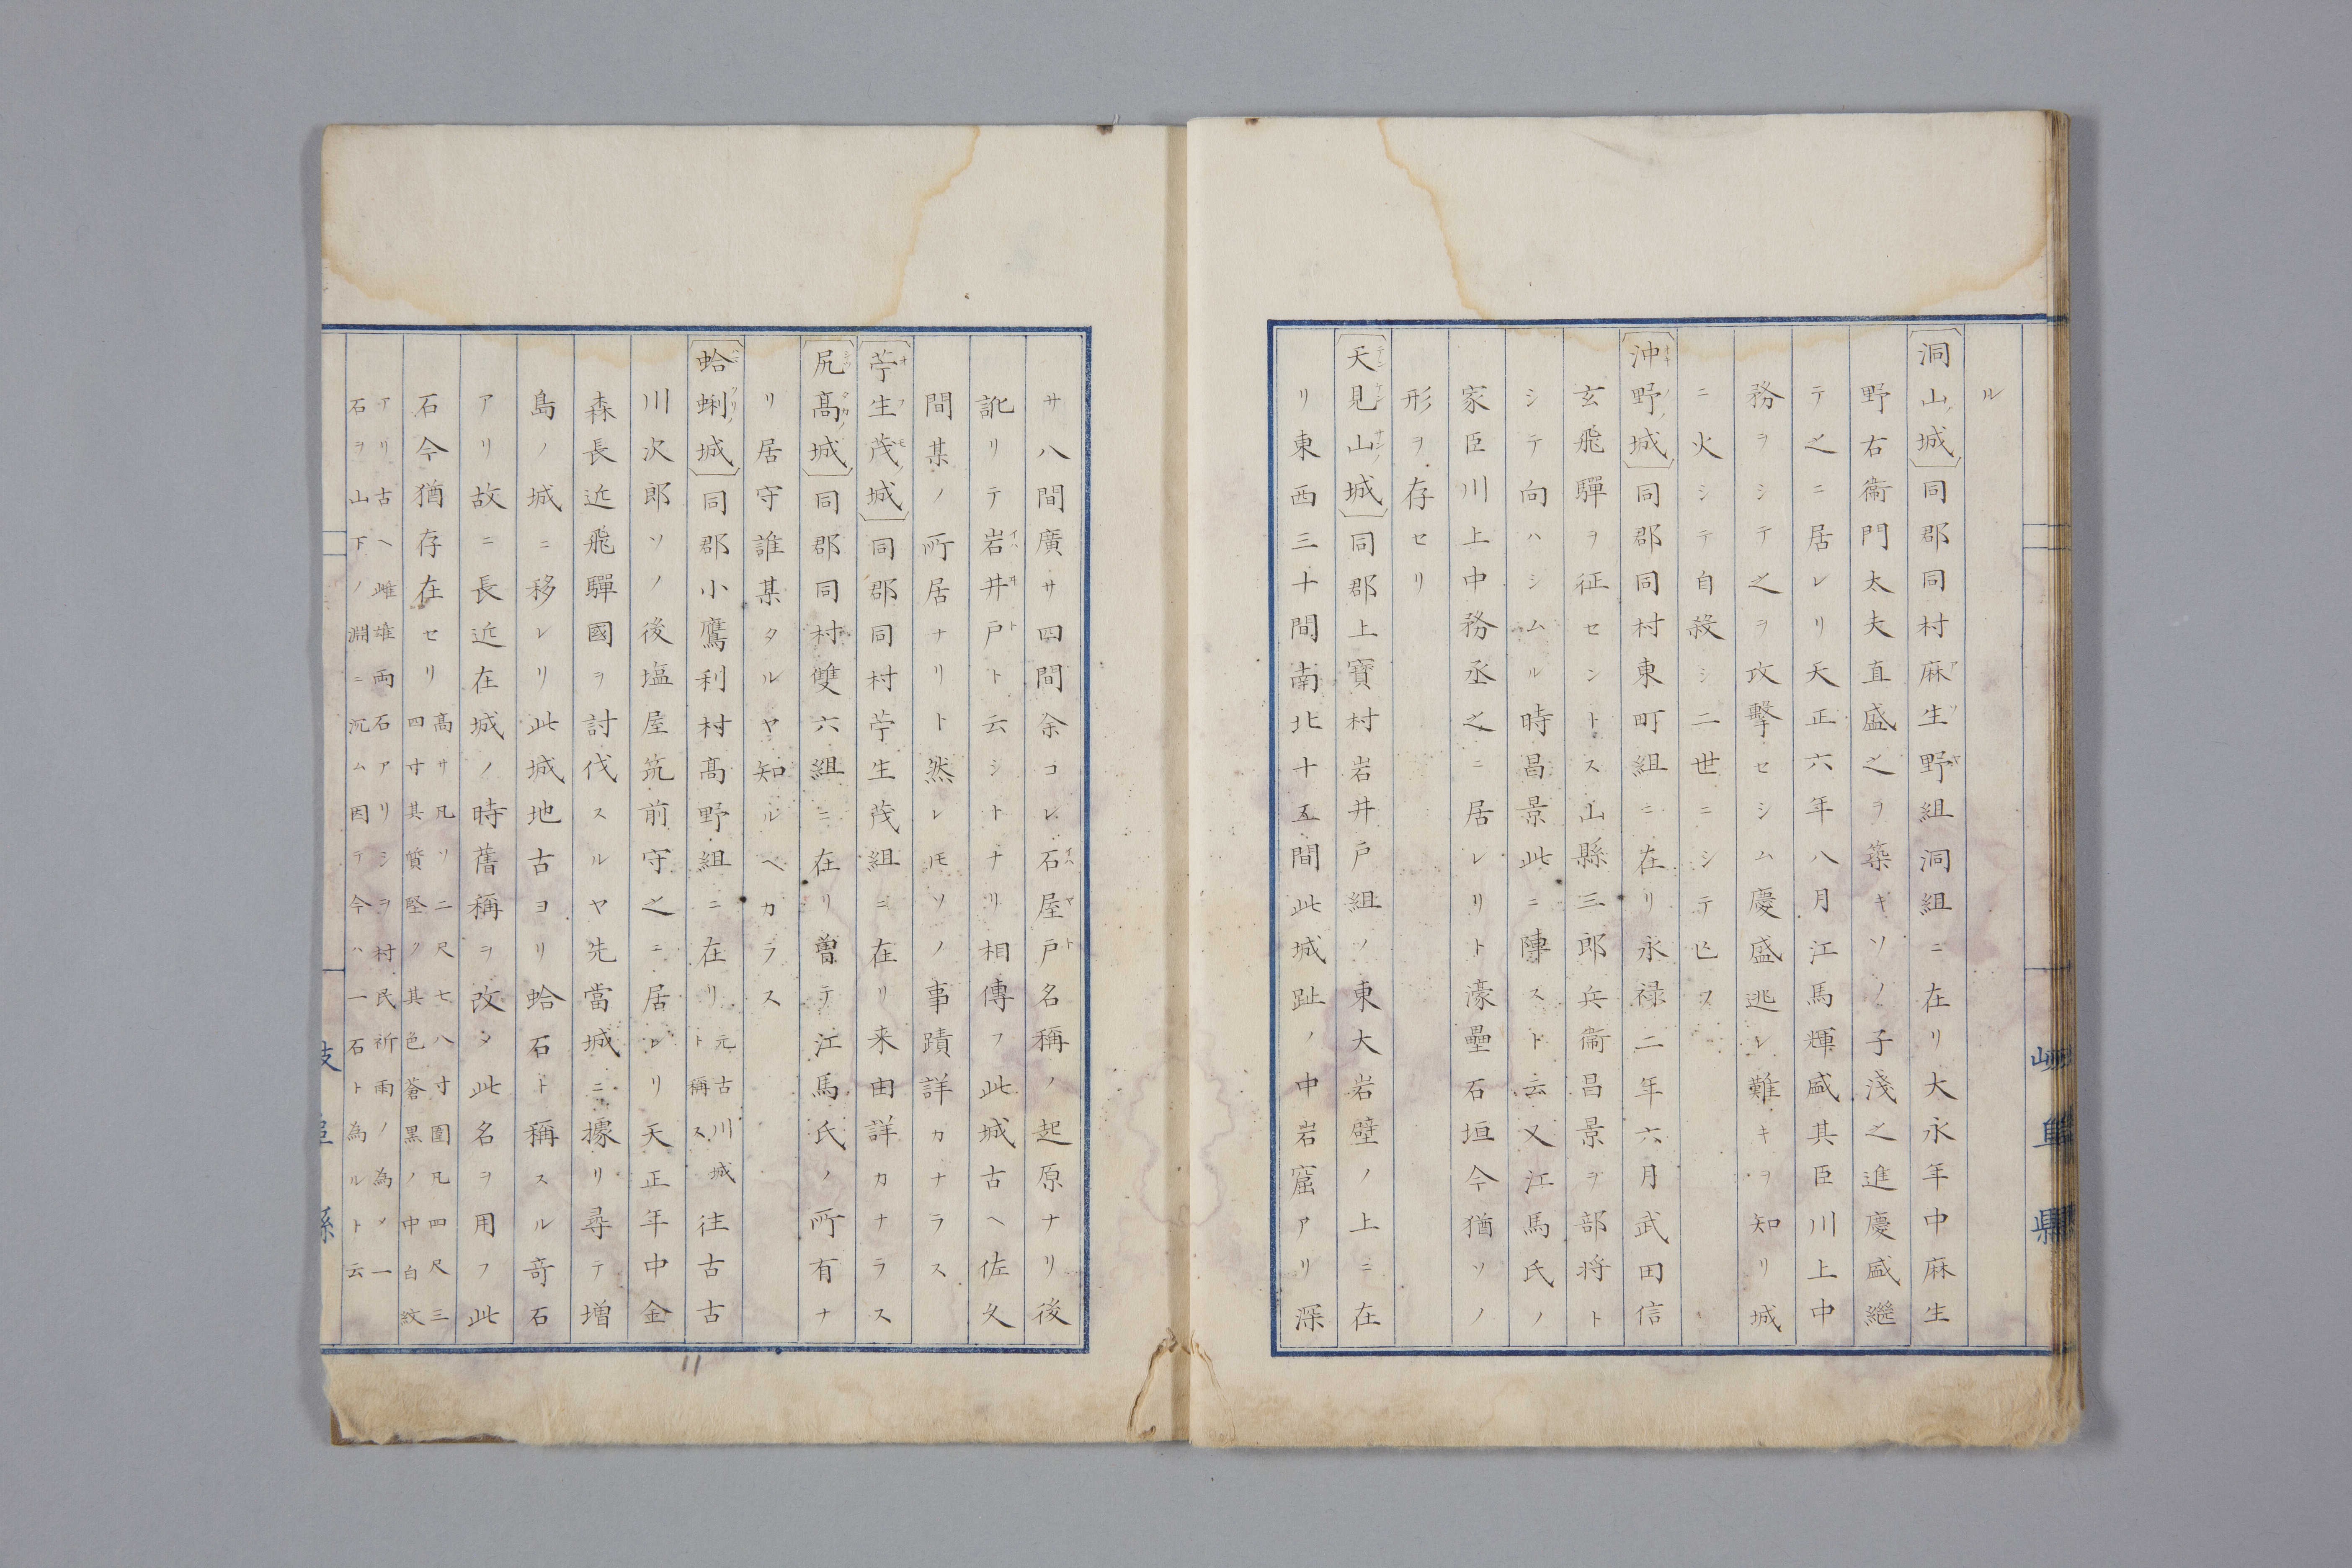 ル
洞山城同郡同村麻生野組洞組ニ在リ大永年中麻生
野右衞門太夫直盛之ヲ築キソノ子淺之進慶盛繼
テ之ニ居レリ天正六年八月江馬輝盛其臣川上中
務ヲシテ之ヲ攻擊セシム慶盛逃レ難キヲ知リ城
ニ火シテ自殺シ二世ニシテ亡ス
沖野城同郡同村東町組ニ在リ永禄二年六月武田信
玄飛驒ヲ征セントス山縣三郎兵衞昌景ヲ部将ト
シテ向ハシムル時昌景此ニ陣スト云又江馬氏ノ
家臣川上中務丞之ニ居レリト濠壘石垣今猶ソノ
形ヲ存セリ
天見山城同郡上寶村岩井戸組ノ東大岩壁ノ上ニ在
リ東西三十間南北十五間此城趾ノ中岩窟アリ深
サ八間廣サ四間余コレ石屋戸名稱ノ起原ナリ後
訛リテ岩井戸ト云シトナリ相傳フ此城古ヘ佐久
間某ノ所居ナリト然レ𪜈ソノ事蹟詳カナラス
苧生茂城同郡同村苧生茂組ニ在リ来由詳カナラス
尻髙城同郡同村雙六組ニ在リ曽テ江馬氏ノ所有ナ
リ居守誰某タルヤ知ルヘカラス
蛤蜊城同郡小鷹利村髙野組ニ在リ元古川城ト稱ス往古古
川次郎ソノ後塩屋筑前守之ニ居レリ天正年中金
森長近飛驒國ヲ討伐スルヤ先當城ニ據リ尋テ増
島ノ城ニ移レリ此城地古ヨリ蛤石ト稱スル奇石
アリ故ニ長近在城ノ時舊稱ヲ改タ此名ヲ用フ此
石今猶存在セリ髙サ凡ソ二尺七八寸圍凡四尺三四寸其質堅ク其色蒼黒ノ中白紋
アリ古ヘ雌雄両石アリシヲ村民祈雨ノ為メ一石ヲ山下ノ淵ニ沉ム因テ今ハ一石ト為ルト云
岐阜縣
岐阜縣
11